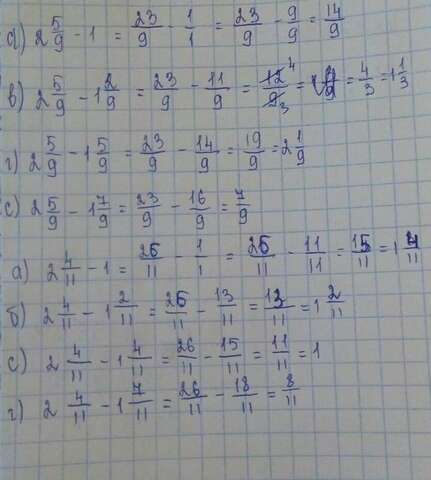 а) 2 5/9 - 1 = 23/9 - 1/1 = 23/9 - 9/9 = 14/9
в) 2 5/9 - 1 2/9 = 23/9 - 11/9 = 12/9 4 3 = = 4/3 = 1 1/3
г) 2 5/9 - 1 5/9 = 23/9 - 14/9 = 19/9 = 2 1/9
с) 2 5/9 - 1 7/9 = 23/9 - 16/9 = 7/9
а) 2 4/11 - 1 = 26/11 - 1/1 = 26/11 - 11/11 = 15/11 = 1 4/11
б) 2 4/11 - 1 2/11 = 26/11 - 13/11 = 13/11 = 1 2/11
с) 2 4/11 - 1 4/11 = 26/11 - 15/11 = 11/11 = 1
г) 2 4/11 - 1 7/11 = 26/11 - 18/11 = 8/11